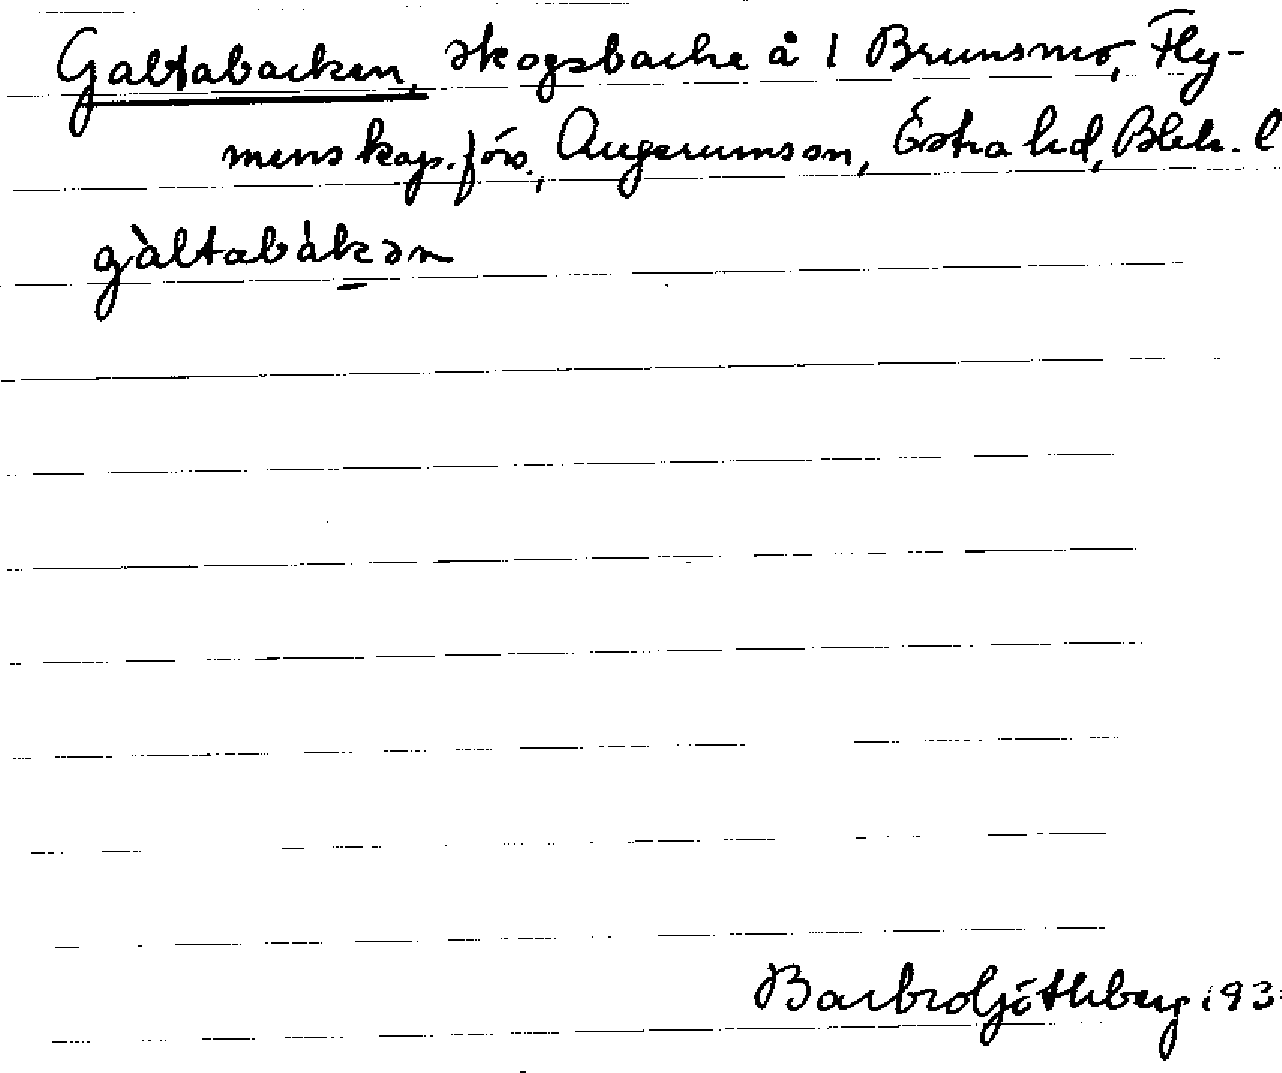 Galtabacken, skogsbacke å 1 Brunsmo, Fly-
mens kap.förs., Augerums sn, Östra hd, Blek. l
gàltabákən
Barbro Göthberg 193